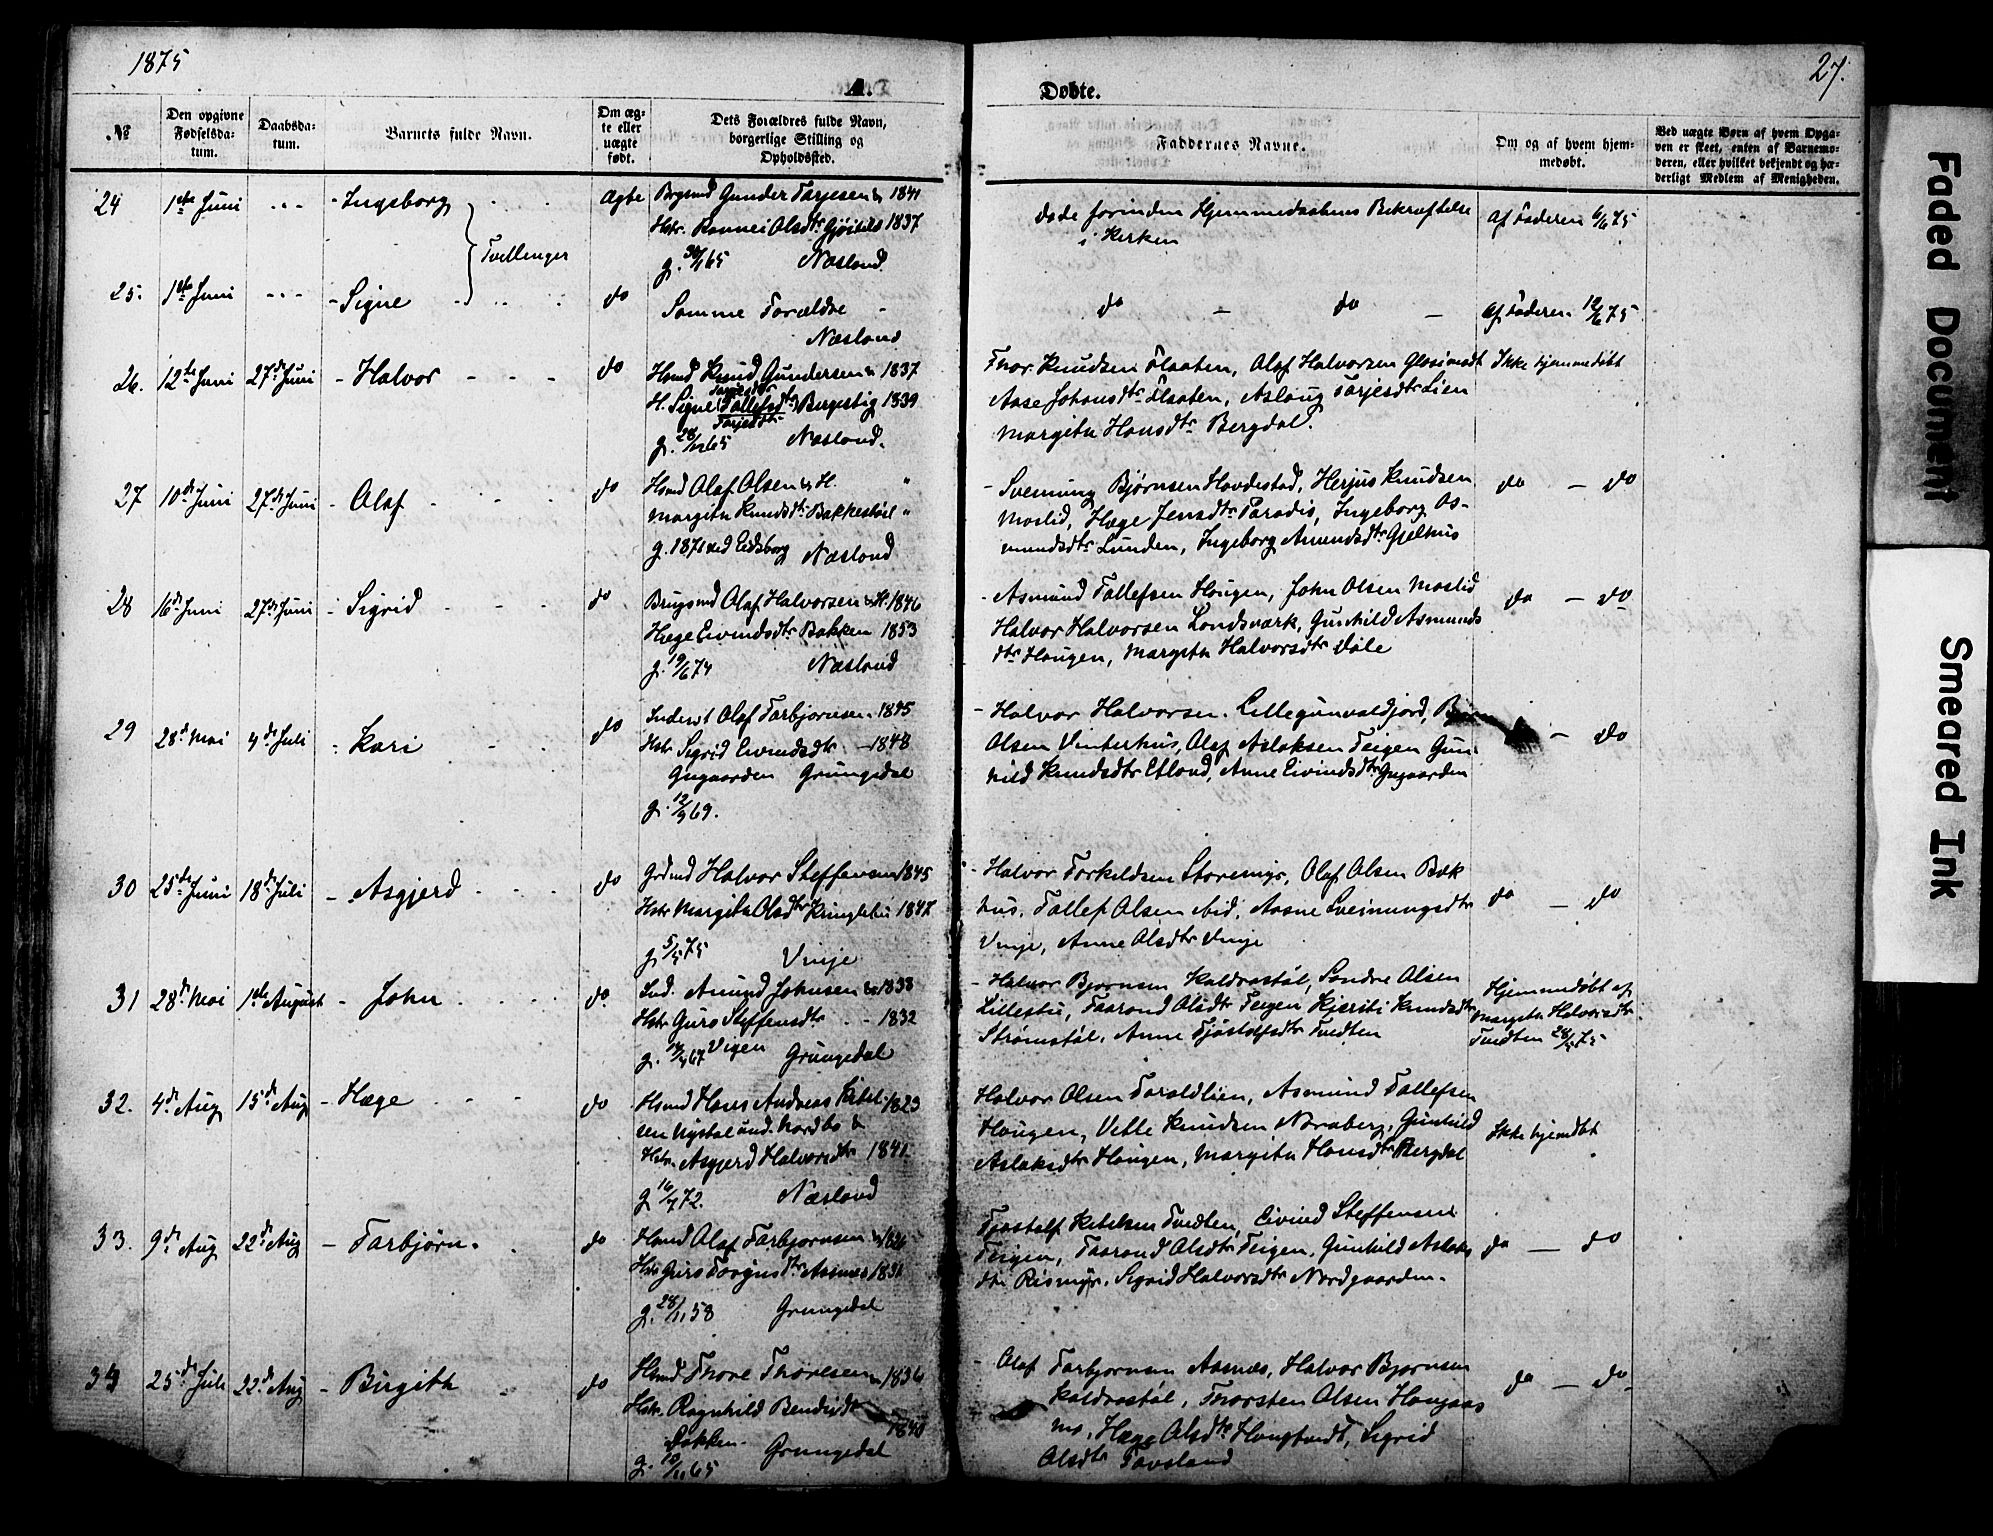 1875
27.
A.
Døbte.
№
Den opgivne Fødselsdatum.
Daabsdatum.
Barnets fulde Navn.
Om ægte eller uægte født.
Dets Forældres fulde Navn, borgerlige Stilling og Opholdssted.
Faddernes Navne.
Om og af hvem hjemmedøbt.
Ved uægte Børn af hvem Opgaven er skeet, enten af Barnemoderen, eller hvilket bekjendt og hæderligt Medlem af Menigheden.
24 1ste Juni Ingeborg Tvillinger Ægte
Gunder Tarjesen 1841
Hstr. Ronnei Olsdtr 1837
g. 65 Næsland
døde forinden Hjemmedaabens Bekræftelse
i Kirken
Af Faderen 6/6 75
25. 1ste Juni Signe do
Samme Forældre
Næsland
do - do -
Af Faderen 12/6 75
26. 12te Juni 27de Juni Halvor do
Hsmd Knud Gundersen & 1837
H. Signe Bergestig 1839
Tarjesdtr
65 Næsland.
Thor Knudsen Flaaten, Olaf Halvorsen
Aase Johansdtr Flaaten, Aslaug Tarjesdtr Lien
Margitu Hansdtr Bergdal.
Ikke hjemmedøbt
27 10de Juni 27de Juni Olaf do
Hsmd Olaf Olsen & H.
Margitu Knudsdtr Bakkestøil
g. 1871 ved Eidsborg Næsland
Svenung Bjørnsen Hovdestad, Herjus Knudsen
Moslid, Hæge Jensdtr Paradis, Ingeborg Osmundsdtr Lunden, Ingeborg Amundsdtr Gjelhus
do - do
28 16de Juni 27de Juni Sigrid do
Brugsmd Olaf Halvorsen & H. 1846
Hæge Eivindsdtr Bakken 1853
g. 19/6 74 Næsland
Asmund Tallefsen Hougen, John Olsen Moslid
Halvor Halvorsen Landsværk, Gunhild Asmundsdtr Hougen, Margitu Halvorsdtr Dale
do - do
29 28de Mai 4de Juli Kari do
Inderst Olaf Tarbjornsen 1845
Hstr Sigrid Eivindsdtr - 1848
Grungedal
g. 12/9 69.
Halvor Halvorsen Lillegunvaldjord,
Olsen Vinterhus, Olaf Aslaksen Teigen Gunhild Knudsdtr Edland, Anne Eivindsdtr
- do
30 25de Juni 18de Juli Asgjerd do
Grdmd Halvor Steffensen 1845
Hstr Margitu Olsdtr 1847
g 5/5 75 Vinje
Halvor Torkildsen Storemyr, Olaf Olsen Bækhus, Tallef Olsen ibid, Aasne Sveinungsdtr
Vinje, Anne Olsdtr Vinje
do - do
31 28de Mai 1ste August John do.
Ind. Amund Johnsen & 1838
Hstr Guro Steffensdtr - 1832
67 Vigen Grungedal
Halvor Bjornsen Kaldrastøl, Sondre Olsen
Lillestu, Taarand Olsdtr Teigen Kjersti Knudsdtr
Strømstøl, Anne Tjostolfsdtr Tvedten
Hjemmedøbt af
Margitu Halvorsdtr
Tvedten 28/5 75
32. 4de Aug 15de Aug Hæge do
Hsmd Hans Andreas Kittilsen 1823
Nystøl und. Nordbø &
Hstr Asgjerd Halvorsdtr 1841
g 72. Næsland
Halvor Olsen Taraldlien, Asmund Tallefsen
Hougen, Vetle Knudsen Noraberg, Gunhild
Aslaksdtr Hougen, Margitu Hansdtr Bergdal
Ikke hjemdøbt
33. 9de Aug 22de Aug Tarbjørn. do
Hsmd Olaf Tarbjornsen & 1826
Hstr Guro Torgusdtr Aasnes 1831
58 Grungedal
Tjostolf Ketilsen Tvedten, Eivind Steffensen
Teigen, Taarand Olsdtr Teigen, Gunhild Aslaksdtr Rismyr. Sigrid Halvorsdtr Nordgaarden.
do - do
34 25de Juli 22de Aug Birgith do
Hsmd Thore Thoresen & 1836
Hstr. Ragnhild Bendixdtr 1840
Bakken Grungedal
65
Olaf Tarbjornsen Aasnæs, Halvor Bjornsen
Kaldrastøl, Thorsten Olsen Haugaasmo, Hæge Olsdtr Haugtvedt, Sigrid
Olsdtr Tavsland
do - do
Faded Document
Smeared Ink